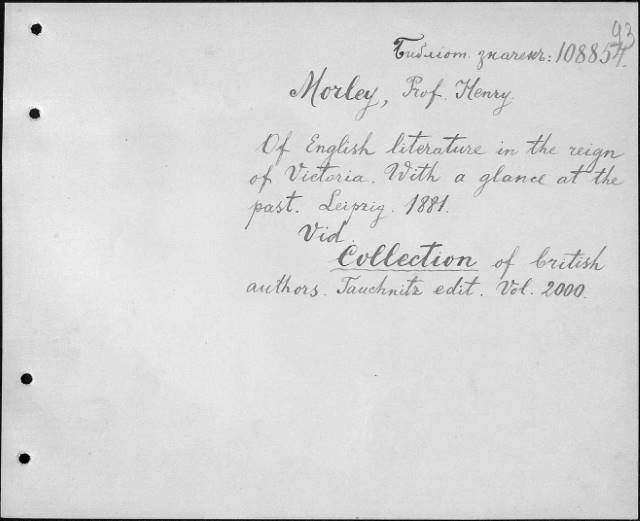 93
Библіот. значекъ: 108854.
Morley, Prof. Henry.
Of English literature in the reign
of Victoria. With a glance at the
past. Leipzig. 1881.
Vid.
Collection of british
authors. Tauchnitz edit. Vol. 2000.